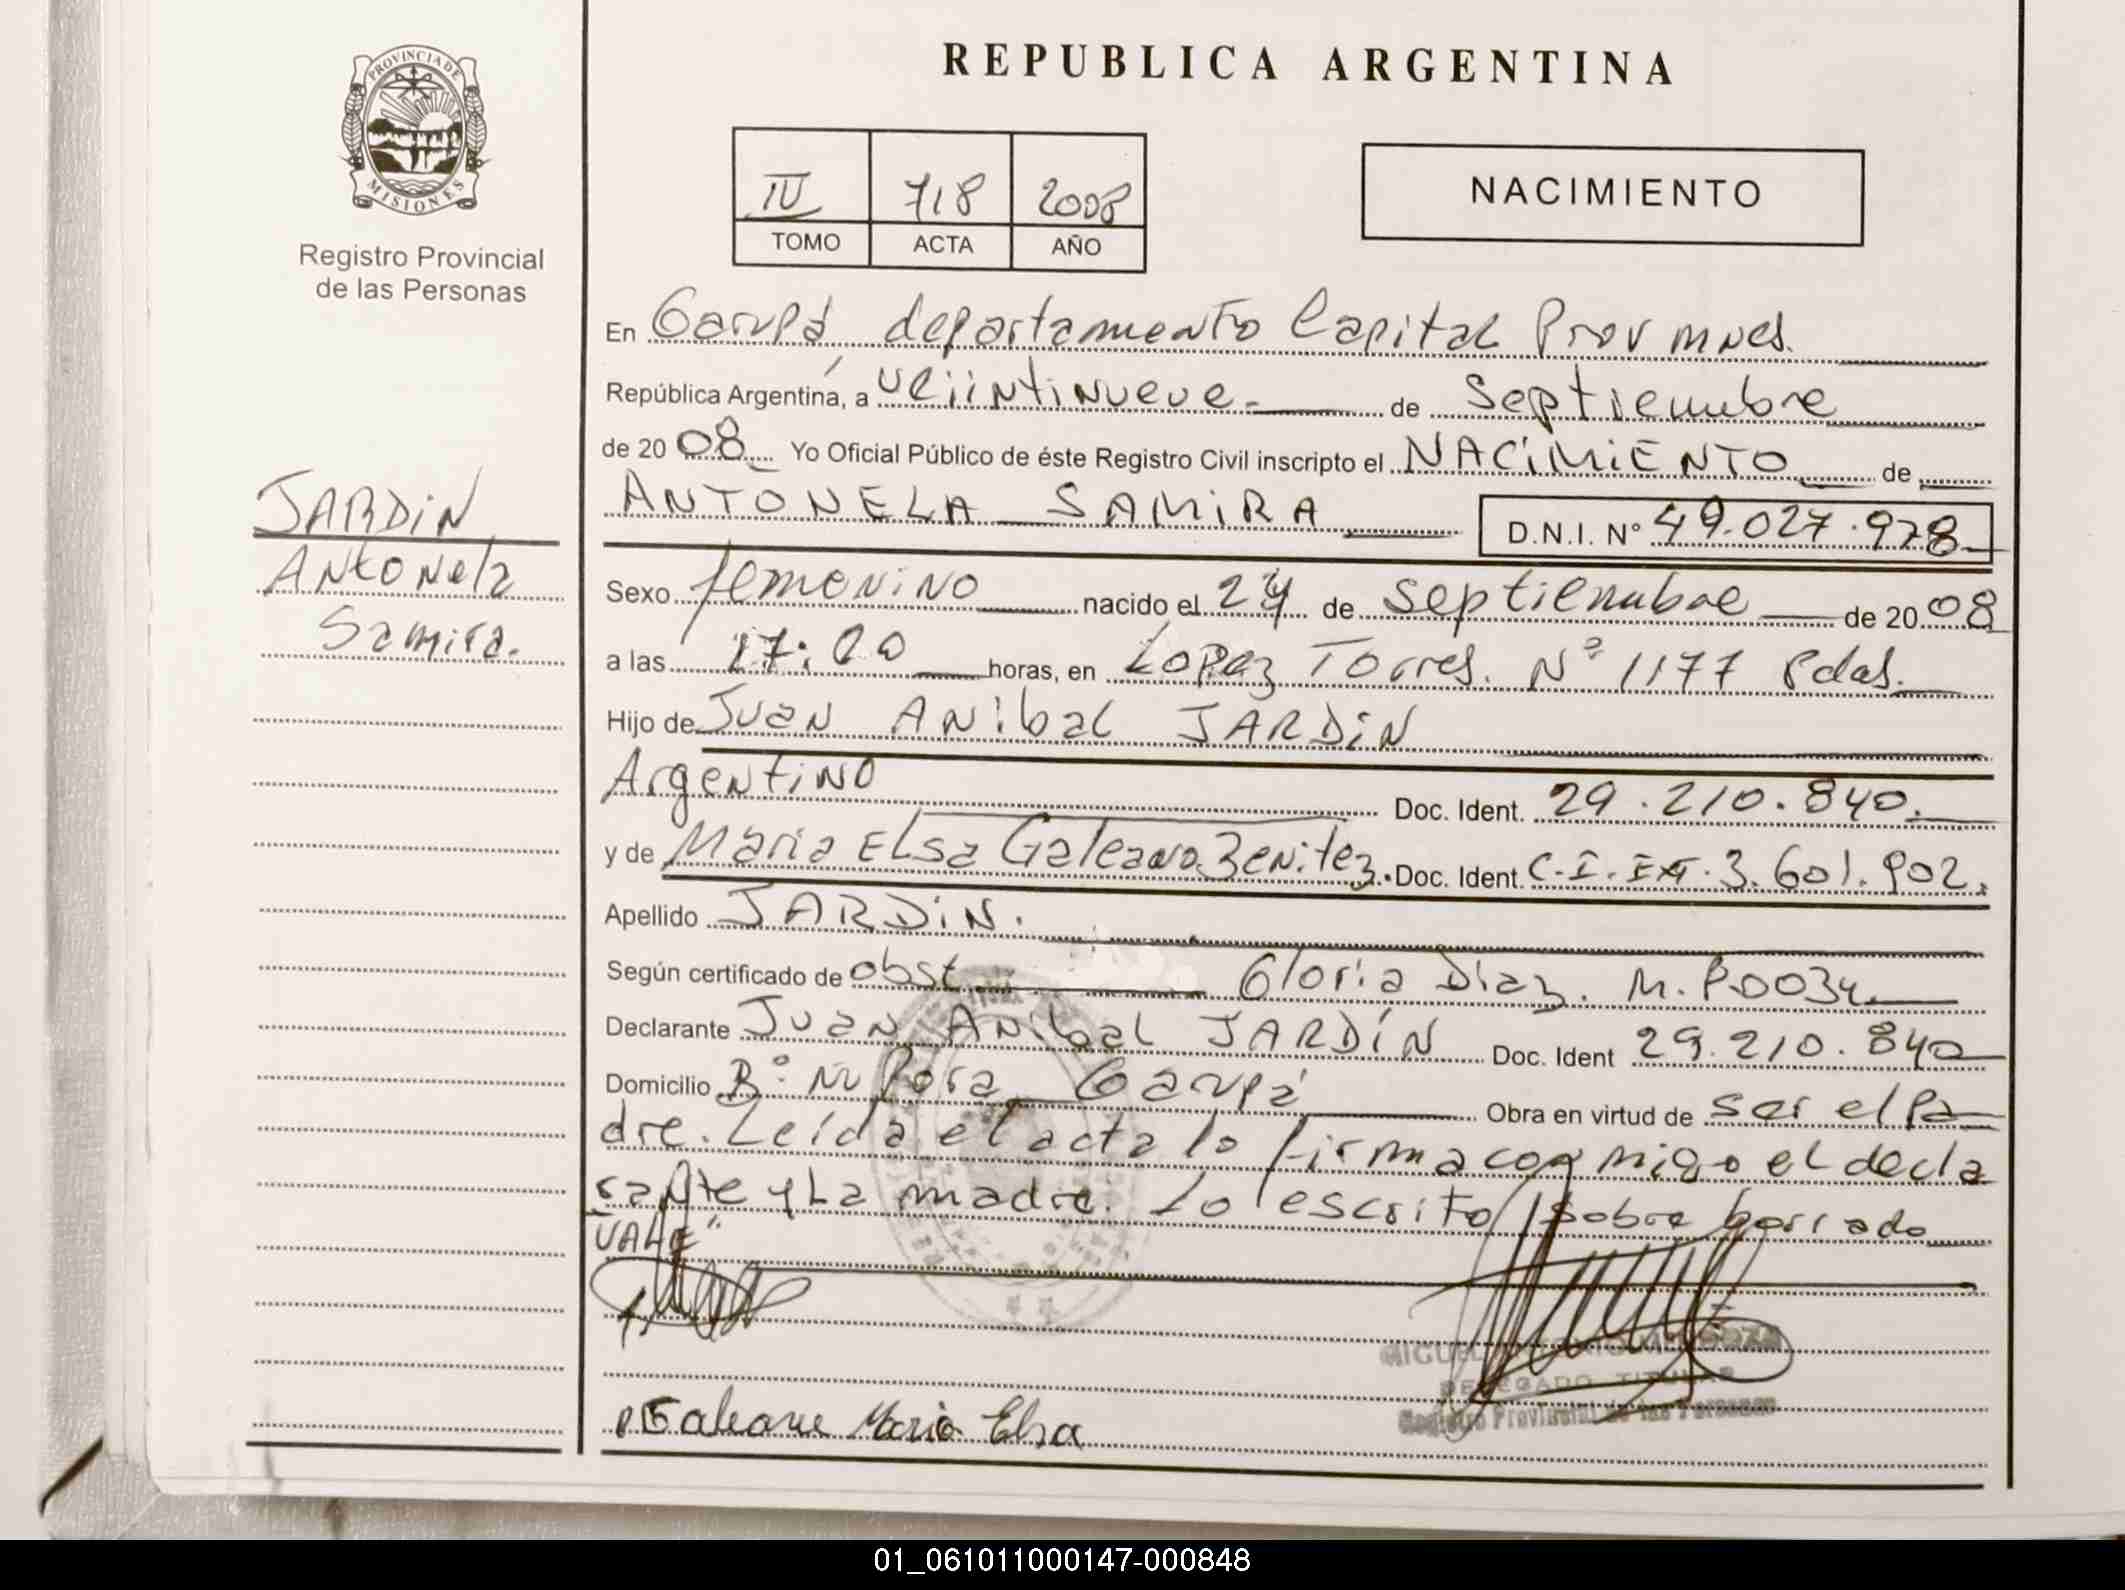 PROVINCIA DE
MISIONES
Registro Provincial
de las Personas
JARDIN
Antonela
Samira.
REPUBLICA ARGENTINA
IV 718 2008
TOMO ACTA AÑO
NACIMIENTO
En Garupá departamento Capital Prov mnes.
República Argentina, a veiintinueve de septiembre
de 2008 Yo Oficial Público de éste Registro Civil inscripto el NACIMIENTO de
ANTONELA SAMIRA D.N.I. Nº 49.027.978
Sexo femenino nacido el 24 de septiembre de 2008
a las 17:00 horas, en Lopez Torres. Nº 1177 Pdas.
Hijo de Juan Anibal JARDIN
Argentino Doc. Ident. 29.210.840.
y de Maria Elsa Galeano Benitez. Doc. Ident. C.I. Ext. 3.601.902.
Apellido JARDIN.
Según certificado de obst Gloria Diaz. M.P.0034
Declarante Juan Anibal JARDÍN Doc. Ident 29.210.840
Domicilio Bº Ñu Pora Garupá Obra en virtud de ser el Pa
dre. Leída el acta lo firma conmigo el decla
rante y La madre. Lo escrito sobre borrado
VALE"
MIGUEL
DELEGADO TITULAR
Registro Provincial de las Personas
Galeano Maria Elsa
01_061011000147-000848